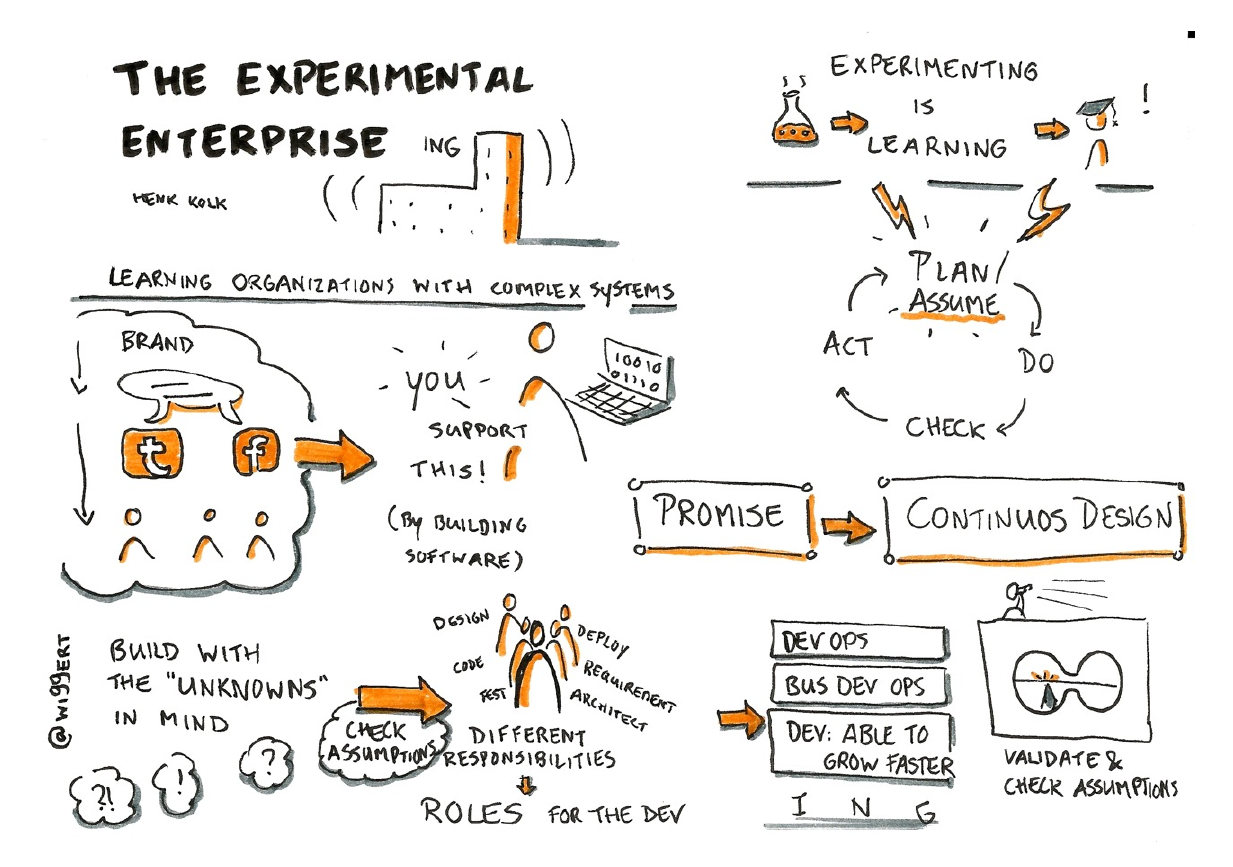 THE EXPERIMENTAL
ENTERPRISE
ING
HENK KOLK
EXPERIMENTING
IS
LEARNING
!
LEARNING ORGANIZATIONS WITH COMPLEX SYSTEMS
BRAND
t
f
YOU
SUPPORT
THIS!
(BY BUILDING
SOFTWARE)
10010
01110
PLAN/
ASSUME
DO
CHECK
ACT
PROMISE
CONTINUOS DESIGN
@WIGGERT
BUILD WITH
THE "UNKNOWNS"
IN MIND
?!
!
?
CHECK
ASSUMPTIONS
DESIGN
CODE
TEST
DEPLOY
REQUIREMENT
ARCHITECT
DIFFERENT
RESPONSIBILITIES
ROLES FOR THE DEV
DEV OPS
BUS DEV OPS
DEV: ABLE TO
GROW FASTER
I N G
VALIDATE &
CHECK ASSUMPTIONS